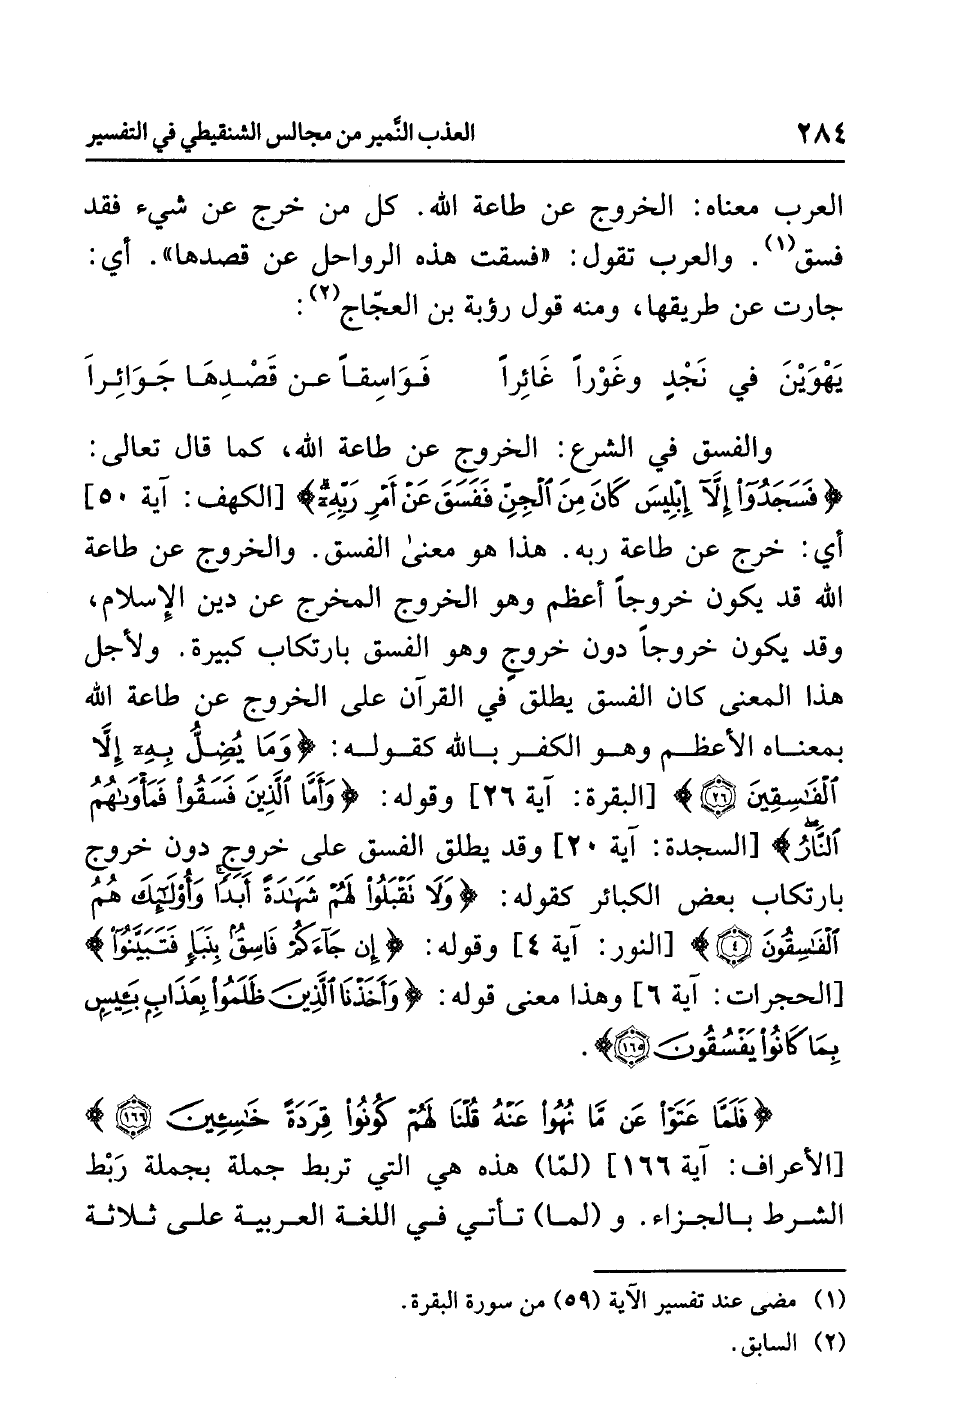 ٢٨٤ العذب النَّمير من مجالس الشنقيطي في التفسير
العرب معناه: الخروج عن طاعة الله. كل من خرج عن شيء فقد
فسق(١). والعرب تقول: «فسقت هذه الرواحل عن قصدها». أي:
جارت عن طريقها، ومنه قول رؤبة بن العجّاج(٢):
يَهْوَيْنَ في نَجْدٍ وغَوْراً غَائِراً فَوَاسِقاً عن قَصْدِهَا جَوَائِراَ
والفسق في الشرع: الخروج عن طاعة الله، كما قال تعالى:
﴿فَسَجَدُوٓاْ إِلَّآ إِبْلِيسَ كَانَ مِنَ ٱلْجِنِّ فَفَسَقَ عَنْ أَمْرِ رَبِّهِۦٓۗ﴾ [الكهف: آية ٥٠]
أي: خرج عن طاعة ربه. هذا هو معنىٰ الفسق. والخروج عن طاعة
الله قد يكون خروجاً أعظم وهو الخروج المخرج عن دين الإسلام،
وقد يكون خروجاً دون خروجٍ وهو الفسق بارتكاب كبيرة. ولأجل
هذا المعنى كان الفسق يطلق في القرآن على الخروج عن طاعة الله
بمعناه الأعظم وهو الكفر بالله كقوله: ﴿وَمَا يُضِلُّ بِهِۦٓ إِلَّا
ٱلْفَٰسِقِينَ ٢٦﴾ [البقرة: آية ٢٦] وقوله: ﴿وَأَمَّا ٱلَّذِينَ فَسَقُواْ فَمَأْوَىٰهُمُ
ٱلنَّارُۖ﴾ [السجدة: آية ٢٠] وقد يطلق الفسق على خروجٍ دون خروج
بارتكاب بعض الكبائر كقوله: ﴿وَلَا تَقْبَلُواْ لَهُمْ شَهَٰدَةً أَبَدًاۚ وَأُوْلَٰٓئِكَ هُمُ
ٱلْفَٰسِقُونَ ٤﴾ [النور: آية ٤] وقوله: ﴿إِن جَآءَكُمْ فَاسِقٌۢ بِنَبَإٍ فَتَبَيَّنُوٓاْ﴾
[الحجرات: آية ٦] وهذا معنى قوله: ﴿وَأَخَذْنَا ٱلَّذِينَ ظَلَمُواْ بِعَذَابٍۭ بَـِٔيسٍۭ
بِمَا كَانُواْ يَفْسُقُونَ ١٦٥﴾.
﴿فَلَمَّا عَتَوْاْ عَن مَّا نُهُواْ عَنْهُ قُلْنَا لَهُمْ كُونُواْ قِرَدَةً خَٰسِـِٔينَ ١٦٦﴾
[الأعراف: آية ١٦٦] (لمّا) هذه هي التي تربط جملة بجملة رَبْط
الشرط بالجزاء. و (لما) تأتي في اللغة العربية على ثلاثة
(١) مضى عند تفسير الآية (٥٩) من سورة البقرة.
(٢) السابق.